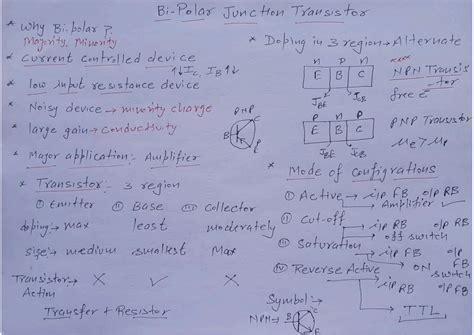 Bi-Polar Junction Transistor
* Why Bi-polar ?
Majority, Minority
* Current Controlled device
↑↓Ic, IB↑↓
* low input resistance device
* Noisy device → minority charge
* large gain → Conductivity
PNP
B
C
E
* Major application:- Amplifier
* Transistor:- 3 region
(i) Emitter (ii) Base (iii) Collector
doping:- max least moderately
size:- medium smallest Max
Transistor:- × ✓ ×
Action
Transfer + Resistor
* Doping in 3 region → Alternate
n p n
E B C
JBE JCB
NPN Transistor
free e-
p n p
E B C
JBE JCB
PNP Transistor
μe > μp
* Mode of Configrations
(i) Active → i/p FB o/p RB
Amplifier ✓
(ii) Cut-off → i/p RB o/p RB
off switch
(iii) Saturation → i/p FB o/p FB
ON switch
(iv) Reverse Active → i/p RB o/p FB
TTL
Symbol:-
NPN → B C E